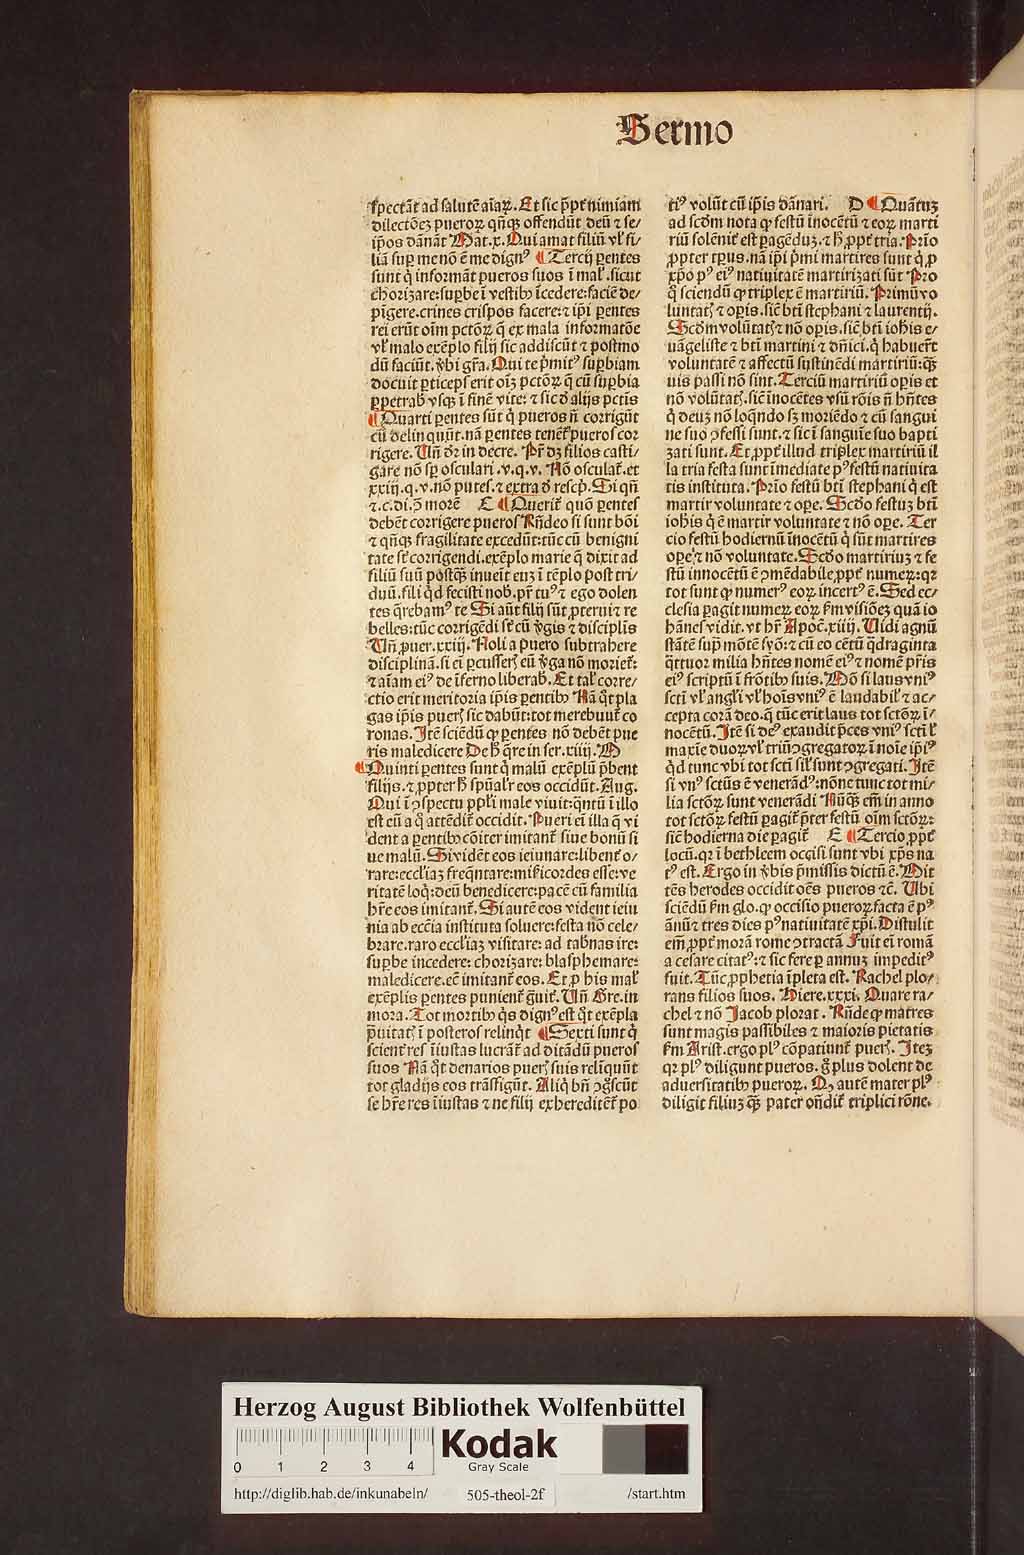 Sermo
spectāt ad salutē aīaꝝ. Et sic ꝓpt̄ nimiam
dilectōeȝ pueroꝝ qn̄qꝫ offendūt deū ⁊ se/
ip̄os dānāt Mat.x. Qui amat filiū vl̓ fi-
liā suꝑ me nō ē me dignꝰ ¶ Tercij ꝑentes
sunt q̇ informāt pueros suos ī mal̓. sicut
chorizare: suꝑbe ī vestibꝰ īcedere: faciē de/
pīgere. crines crispos facere: ⁊ ip̄i ꝑentes
rei erūt oīm pctōꝝ q̄ ex mala informatōe
vl̓ malo exēplo filij sic addiscūt ⁊ postmo
dū faciūt. v̄bi gr̄a. Qui te p̄mitꝰ suꝑbiam
docuit ꝑticeps erit oīȝ pctōꝝ q̄ cū suꝑbia
ꝑpetrab̄ vsqꝫ ī finē vite: ⁊ sic d̓ alijs pctis
¶ Quarti ꝑentes sūt q̇ pueros n̄ corrigūt
cū delinquūt. nā ꝑentes tenēt̄ pueros cor
rigere. Un̄ d̓r in decre. Pr̄ dȝ filios casti/
gare nō sꝑ osculari .v.q.v. Nō osculat̄. et
xxiij.q.v. nō putes. ⁊ extra d̓ rescp̄. Si qn̄
⁊.c.di.ꝫ morē E ¶ Querit̄ quō ꝑentes
debēt corrigere pueros Rn̄deo si sunt bōi
⁊ qn̄qꝫ fragilitate excedūt: tūc cū benigni
tate st̄ corrigendi. exēplo marie q̄ dixit ad
filiū suū postqꝫ inuēit euȝ ī tēplo post tri/
duū. fili qd̓ fecisti nob̄. pr̄ tuꝰ ⁊ ego dolen
tes q̄rebamꝰ te Si aūt filij sūt ꝓterui ⁊ re
belles: tūc corrigēdi st̄ cū v̓gis ⁊ disciplis
Un̄ ꝓuer.xxiij. Noli a puero subtrahere
disciplinā. si ei ꝑcusserꝭ eū v̓ga nō moriet̄:
⁊ aīam eiꝰ de īferno liberab̄. Et tal̓ corre/
ctio erit meritoria ip̄is ꝑentibꝰ Nā qt̓ pla
gas ip̄is puerꝭ sic dabūt: tot merebunt̄ co
ronas. Itē sciēdū ꝙ ꝑentes nō debēt pue
ris maledicere De h̓ q̄re in ser.xiiij. M
¶ Quinti ꝑentes sunt q̇ malū exēplū p̄bent
filijs. ⁊ ꝓpter h̓ spūal̓r eos occidūt. Aug.
Qui ī ꝯspectu ppl̓i male viuit: q̄ntū ī illo
est eū a q̇ attēdit̄ occidit. Pueri ei illa q̄ vi
dent a ꝑentibꝰ cōiter imitant̄ siue bonū si
ue malū. Si vidēt eos ieiunare: libent̄ o/
rare: eccl̓iaȝ freq̄ntare: mīcordes esse: ve
ritatē loq̇: deū benedicere: pacē cū familia
hr̄e eos imitant̄. Si autē eos vident ieiu
nia ab ecc̄ia instituta soluere: festa nō cele/
brare. raro eccl̓iaȝ visitare: ad tab̄nas ire:
suꝑbe incedere: chorizare: blasphemare:
maledicere. ec̄ imitant̄ eos. Et ꝓ his mal̓
exēplis ꝑentes punient̄ ḡuit̄. Un̄ Gre. in
mora. Tot mortibꝰ qs̓ dignꝰ est qt̓ exēpla
p̄uitatꝭ ī posteros relinqt̓ ¶ Sexti sunt q̇
scient̄ res īiustas lucrāt̄ ad ditādū pueros
suos Nā qt̓ denarios puerꝭ suis relīquūt
tot gladijs eos trāsfigūt. Aliq̇ bn̄ ꝯgscūt
se hr̄e res īiustas ⁊ ne filij exhereditēt̄ po
tiꝰ volūt cū ip̄is dānari. D ¶ Quātuȝ
ad scd̓m nota ꝙ festū īnocētū ⁊ eoꝝ marti
riū solēnit̄ est ꝑagēduȝ. ⁊ h̓ ꝓpt̄ tria. Prīo
ꝓpter tꝑus. nā ip̄i p̄mi martires sunt q̇ ꝓ
xp̄o pꝰ eiꝰ natiuitatē martirizati sūt Pro
q̇ sciendū ꝙ triplex ē martiriū. Primū vo
luntatꝭ ⁊ oꝑis. sic̄ bt̄i stephani ⁊ laurentij.
Scd̓m volūtatꝭ ⁊ nō oꝑis. sic̄ bt̄i ioh̄is e/
uāgeliste ⁊ bt̄i martini ⁊ dn̄ici. q̇ habuer̄t
voluntatē ⁊ affectū sustinēdi martiriū: qꝫ
uis passi nō sint. Terciū martiriū oꝑis et
nō volūtatꝭ. sic̄ īnocētes vsū rōis n̄ hn̄tes
q̇ deuȝ nō loqn̄do sȝ moriēdo ⁊ cū sangui
ne suo ꝯfessi sunt. ⁊ sic ī sanguīe suo bapti
zati sunt. Et ꝓpt̄ illud triplex martiriū il
la tria festa sunt īmediate pꝰ festū natiuita
tis instituta. Prīo festū bt̄i stephani q̇ est
martir voluntate ⁊ oꝑe. Scd̓o festuȝ bt̄i
ioh̄is q̇ ē martir voluntate ⁊ nō oꝑe. Ter
cio festū hodiernū īnocētū q̇ sūt martires
oꝑe: ⁊ nō voluntate. Scd̓o martiriuȝ ⁊ fe
stū innocētū ē ꝯmēdabile ꝓpt̄ numeꝝ: qꝛ
tot sunt ꝙ numerꝰ eoꝝ incertꝰ ē. Sed ec/
clesia ꝑagit numeꝝ eoꝝ ẜm visiōeȝ quā io
hānes vidit. vt hr̄ Apoc̄.xiiij. Uidi agnū
stātē supͣ mōtē syō: ⁊ cū eo cētū qdraginta
qttuor milia hn̄tes nomē eiꝰ ⁊ nomē pr̄is
eiꝰ scriptū ī frōtibꝰ suis. Nō si laus vniꝰ
scti vl̓ angl̓i vl̓ hoīs vniꝰ ē laudabil̓ ⁊ ac/
cepta corā deo. q̄ tūc erit laus tot sctōꝝ ī/
nocētū. Itē si deꝰ exaudit p̄ces vniꝰ scti l̓
maxīe duoꝝ vl̓ triū ꝯgregatoꝝ ī noīe ip̄iꝰ
qd̓ tunc vbi tot scti sil̓ sunt ꝯgregati. Itē
si vnꝰ sctūs ē venerādꝰ: nōne tunc tot mi/
lia sctōꝝ sunt venerādi Nūqꝫ em̄ in anno
tot sctōꝝ festū ꝑagit̄ p̄ter festū oīm sctōꝝ:
sic̄ hodierna die ꝑagit̄ E ¶ Tercio ꝓpt̄
locū. qꝛ ī bethleem occisi sunt vbi xp̄s na
tꝰ est. Ergo in v̄bis p̄missis dictū ē. Mit
tēs herodes occidit oēs pueros ⁊c̄. Ubi
sciēdū ẜm glo. ꝙ occisio pueroꝝ facta ē pꝰ
ānū ⁊ tres dies pꝰ natiuitatē xp̄i. Distulit
em̄ ꝓpt̄ morā rome ꝯtractā Fuit ei romā
a cesare citatꝰ: ⁊ sic fere ꝑ annuȝ impeditꝰ
fuit. Tūc ꝓphetia īpleta est. Rachel plo/
rans filios suos. Hiere.xxxi. Quare ra/
chel ⁊ nō Jacob plorat. Rn̄de ꝙ matres
sunt magis passibiles ⁊ maioris pietatis
ẜm Arist. ergo plꝰ cōpatiunt̄ puerꝭ. Iteȝ
qꝛ plꝰ diligunt pueros. g̊ plus dolent de
aduersitatibꝰ pueroꝝ. Qꝫ autē mater plꝰ
diligit filiuȝ qꝫ pater on̄dit̄ triplici rōne.
Herzog August Bibliothek Wolfenbüttel
0 1 2 3 4
Kodak
Gray Scale
http://diglib.hab.de/inkunabeln/ 505-theol-2f /start.htm